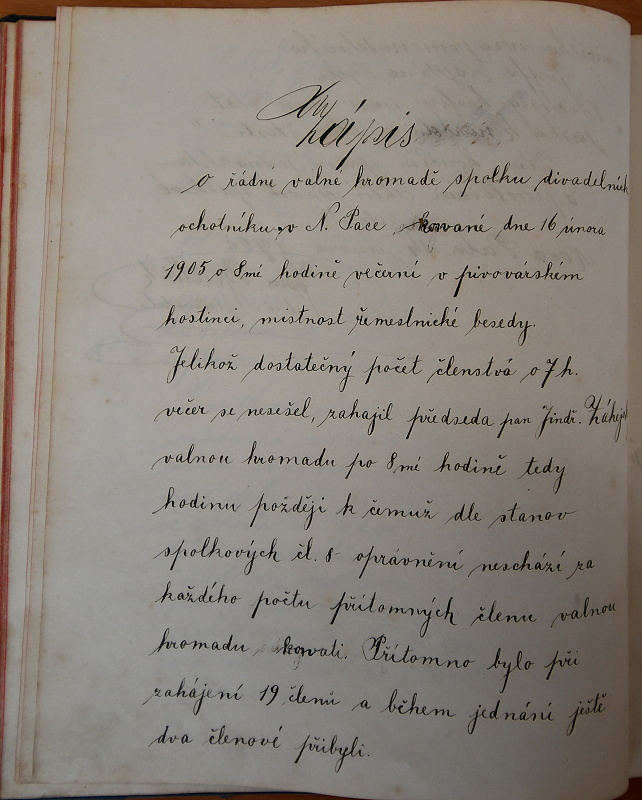 Zápis
o řádné valné hromadě spolku divadelních
ochotníku v N. Pace konané dne 16 února
1905 o 8mé hodině večerní v pivovárském
hostinci, mistnost řemeslnické besedy.
Jelikož dostatečný počet členstvá o 7 h.
večer se nesešel, zahajil předseda pan Jindř.
valnou hromadu po 8mé hodině tedy
hodinu později k čemuž dle stanov
spolkových čl. 8 oprávnění neschází za
každého počtu přítomných členu valnou
hromadu konati. Přítomno bylo při
zahájení 19 členů a během jednání ještě
dva členové přibyli.